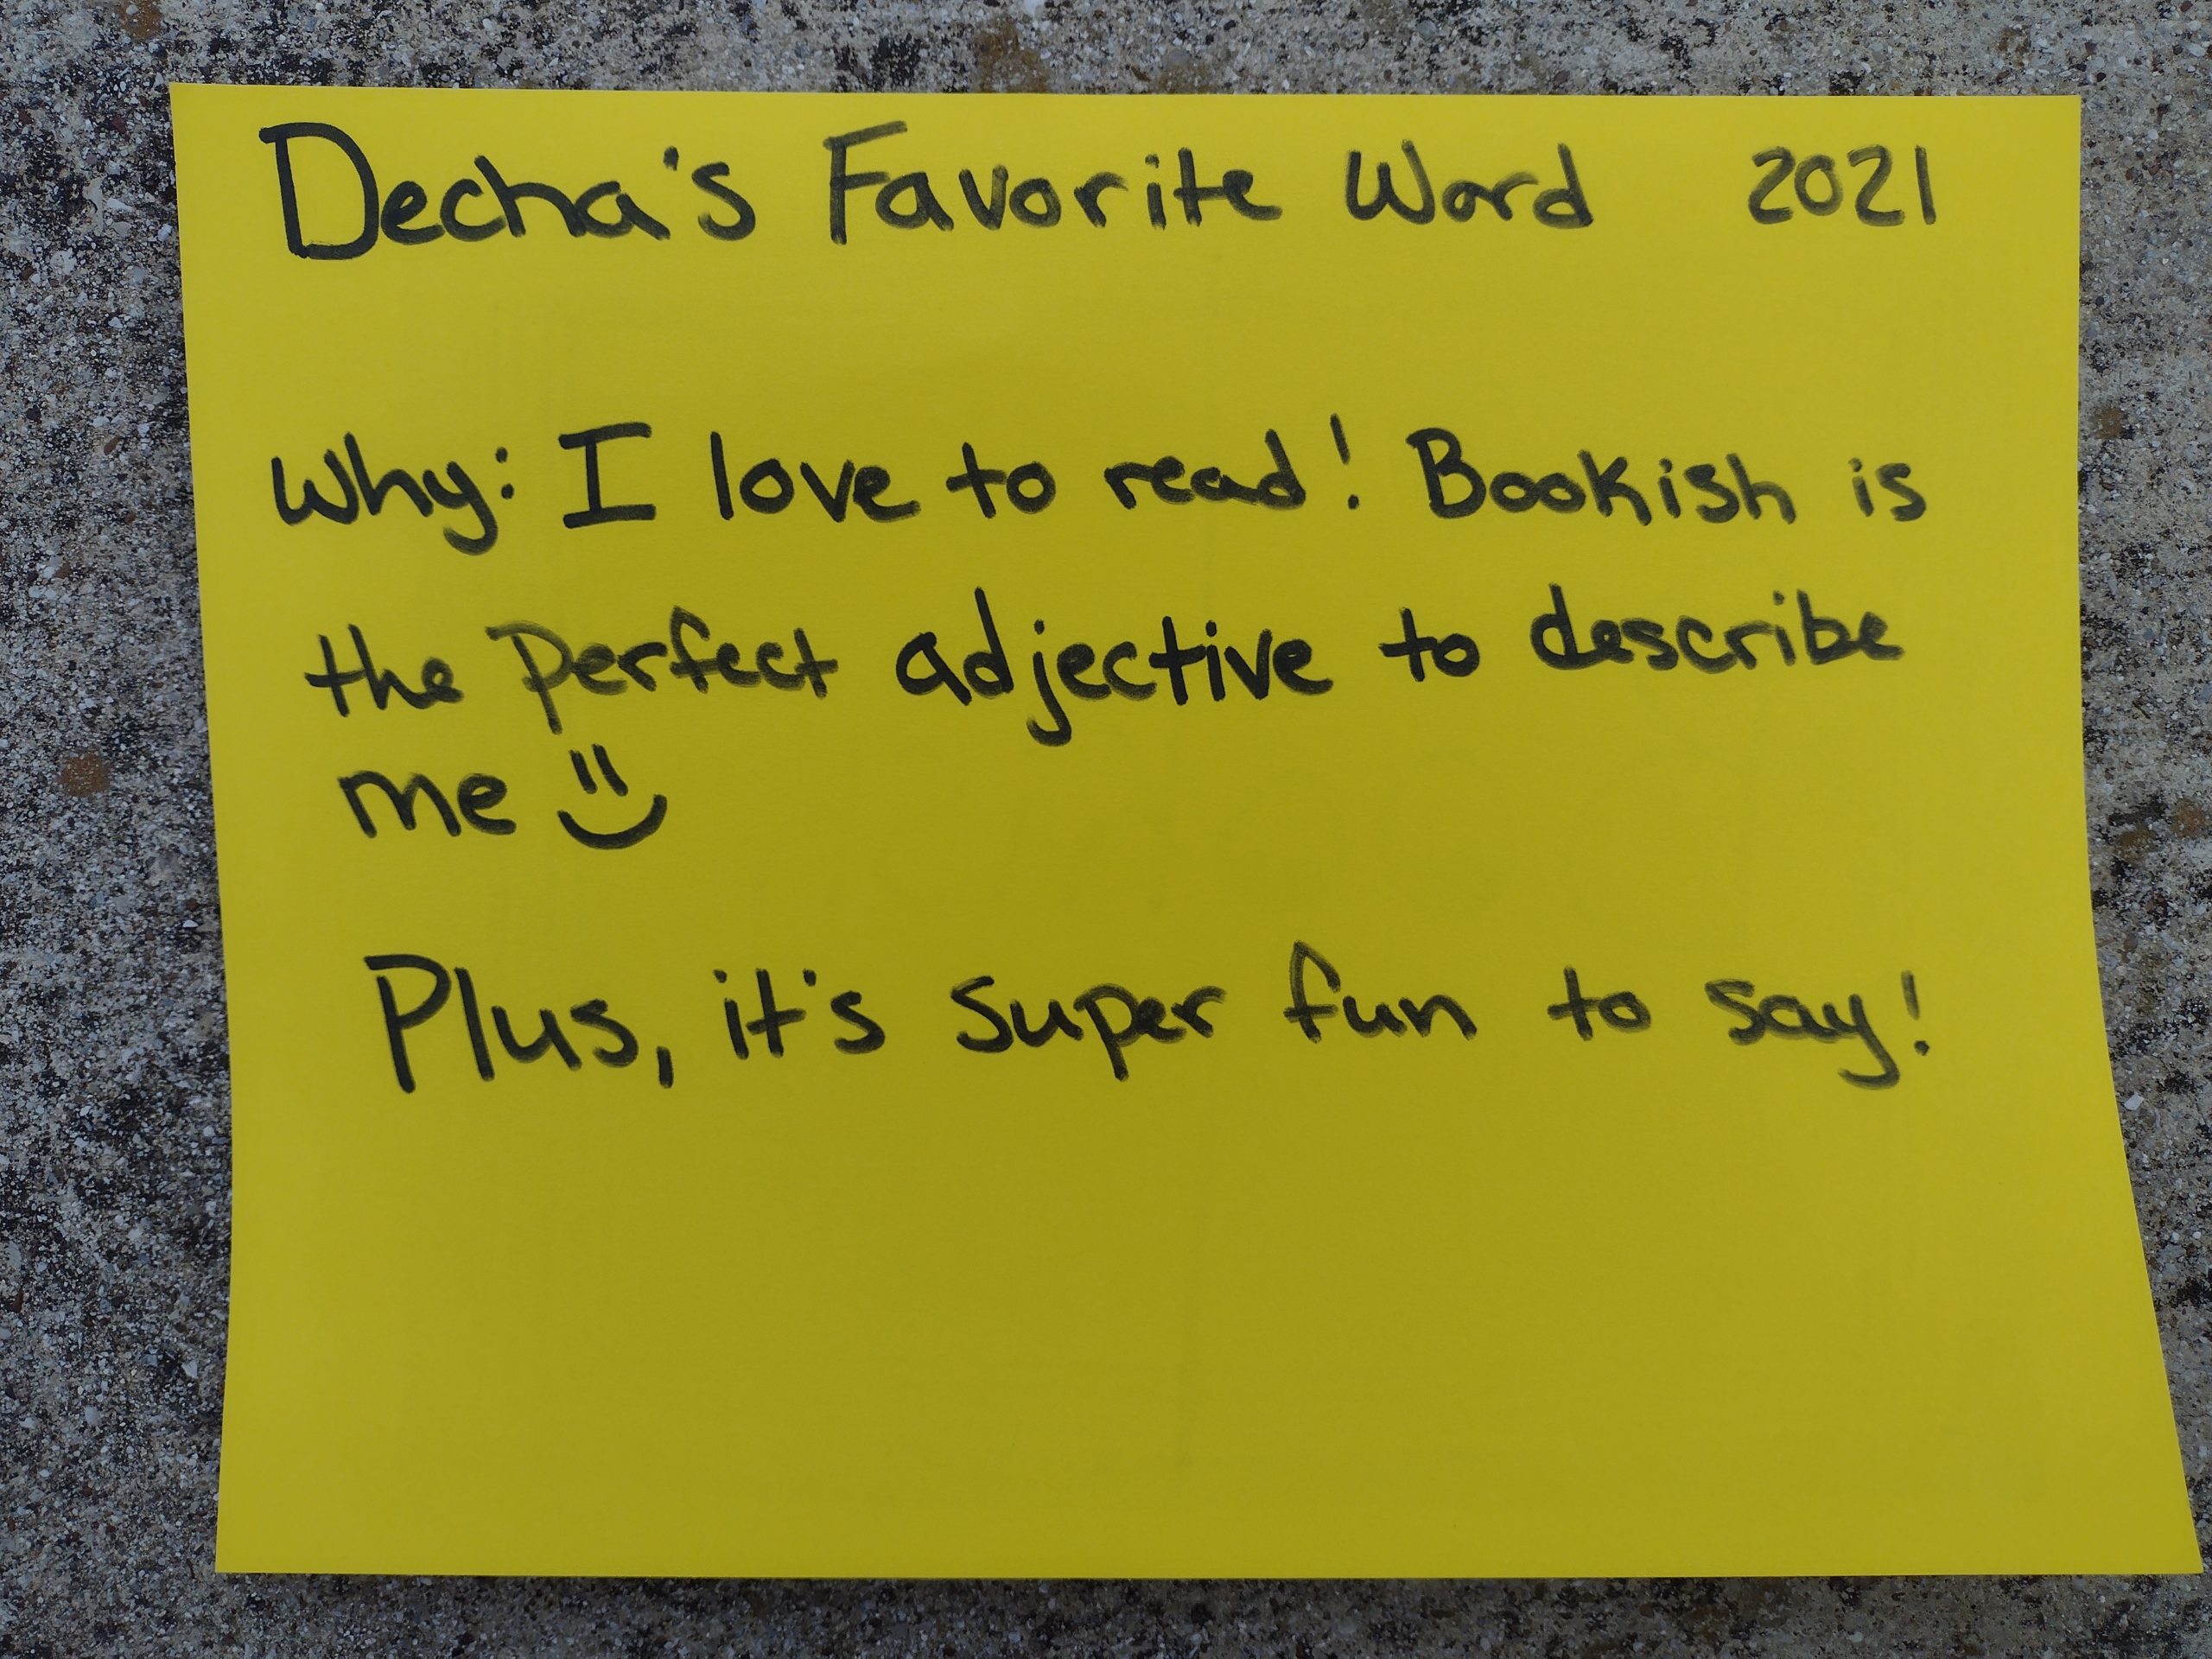 Decha's Favorite Word 2021
Why: I love to read! Bookish is
the perfect adjective to describe
me
Plus, it's super fun to say!